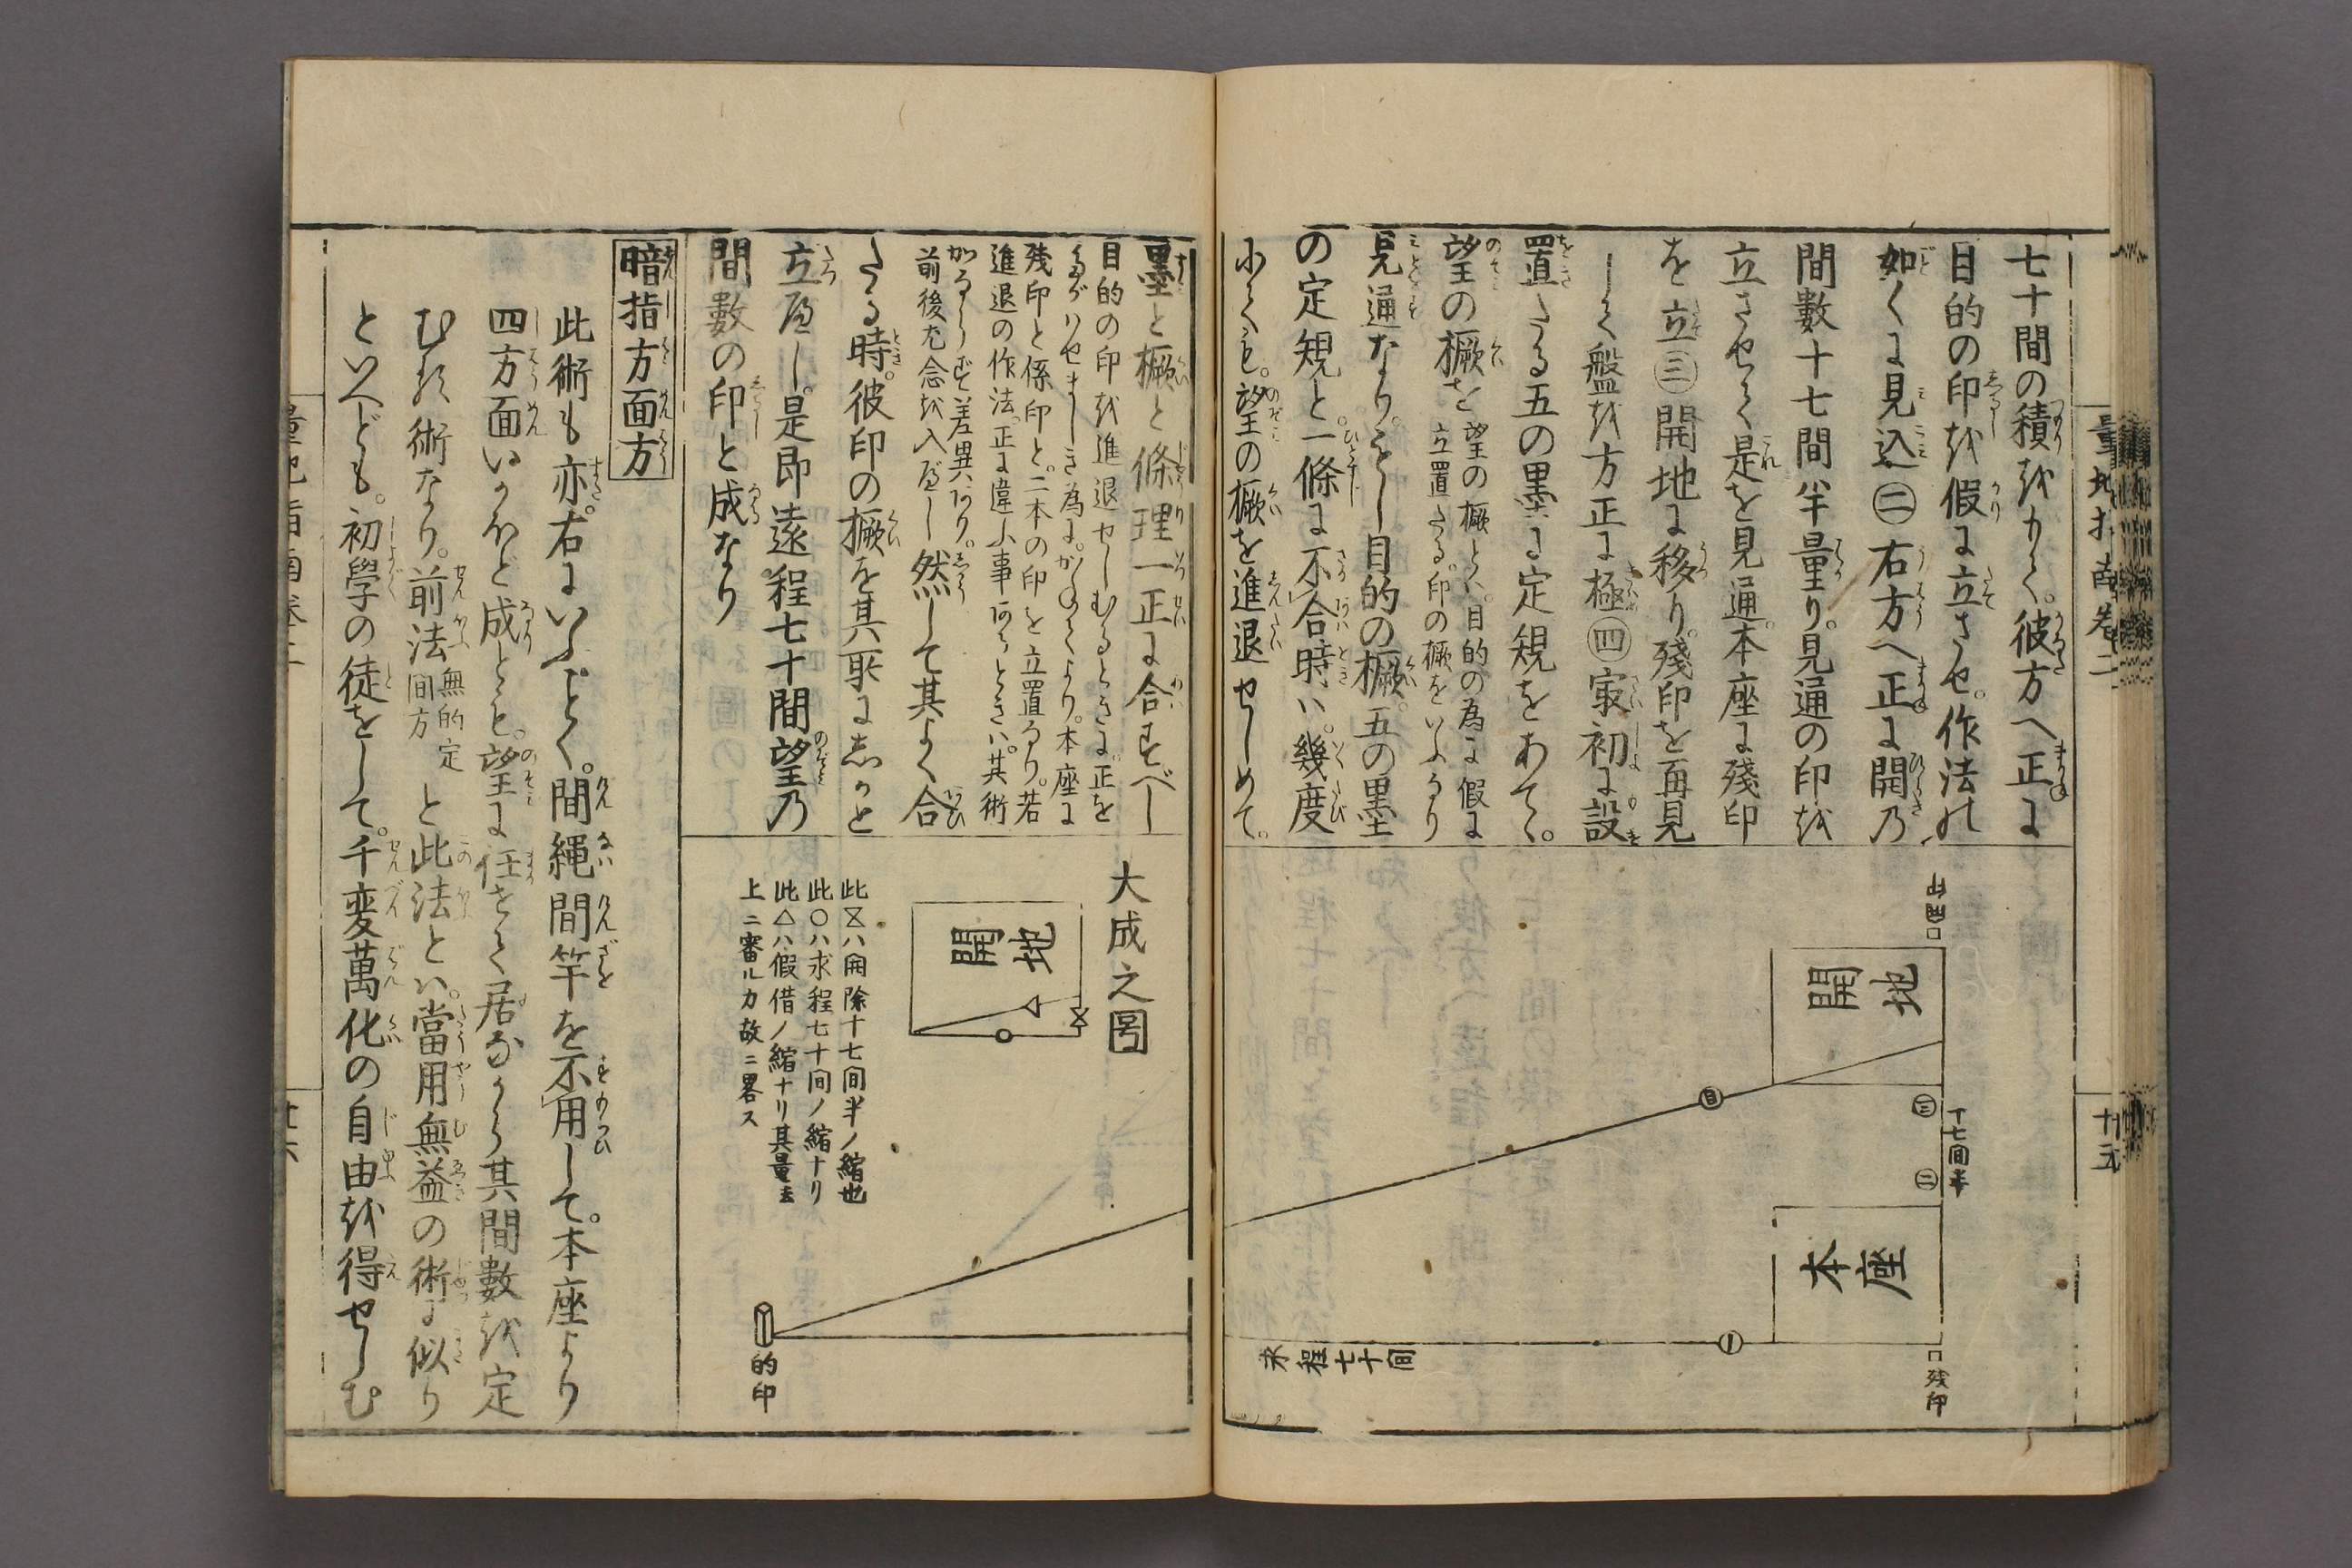 七十間の積をかく。彼方へ正に
目的の印を假に立させ。作法の
如くに見込㊁右方へ正に開乃
間數十七間半量り。見通の印を
立させて是を見通。本座に殘印
を立㊂開地に移り。殘印を再見
して盤を方正に極㊃最初に設
置たる五の墨に定規をあてて。
望の橛を
望の橛とハ。目的の為に假に
立置たる。印の橛をいふなり
見通なり。もし目的の橛。五の墨
の定規と。一條に不合時ハ。幾度
にても。望の橛を進退せしめて。
量地指南卷二
十五
開地
本座
十七間半
㊂
㊁
㊀
目
残印
求程七十間
墨と橛と條理一正に合すべし
目的の印を進退せしむるときに。正を
たがハせまじき為に。かくのごとくより。本座に
殘印と係印と。二本の印を立置なり。若
進退の作法。正に違ふ事あるときハ。其術
かならず差異あり。
前後尤念を入べし
然して其よく合
たる時。彼印の橛を其所にしかと
立べし。是即遠程七十間望乃
間數の印と成なり
大成之圖
開地
此⧖ハ開除十七間半ノ縮也
此○ハ求程七十間ノ縮ナリ
此△ハ假借ノ縮ナリ其量法
上ニ審ルカ故ニ畧ス
的印
暗指方面方
此術も亦。右にいふごとく。間繩間竿を不用して。本座より
四方面いかほど成とも。望に任せて居ながら其間數を定
むる術なり。前法
無的定
間方
と此法とハ。當用無益の術に似り
といへども。初學の徒をして。千変萬化の自由を得せしむ
量地指南卷二
十六